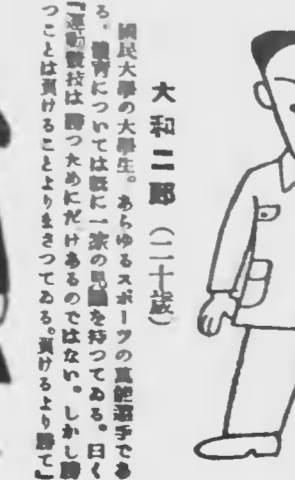 大和二郎（二十歳）
國民大學の大學生。あらゆるスポーツの萬能選手であ
る。體育については既に一家の見識を持つてゐる。曰く
『運動競技は勝つためにだけあるのではない。しかし勝
つことは負けることよりまさつてゐる。負けるより勝て』